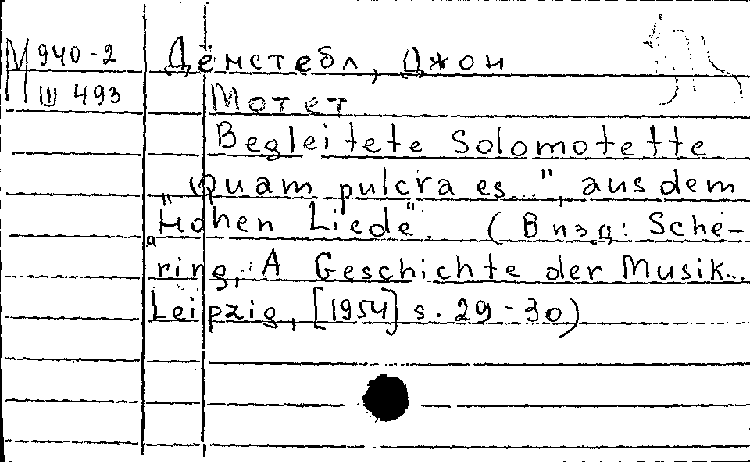 М 940-2 Дёнстебл, Джон
Ш 493 Мотет
Begleitete Solomotette
"Quam pulcra es...", aus dem
"Hohen Liede". (В изд: Sche-
ring, A Geschichte der Musik...
Leipzig, [1954] s. 29-30)